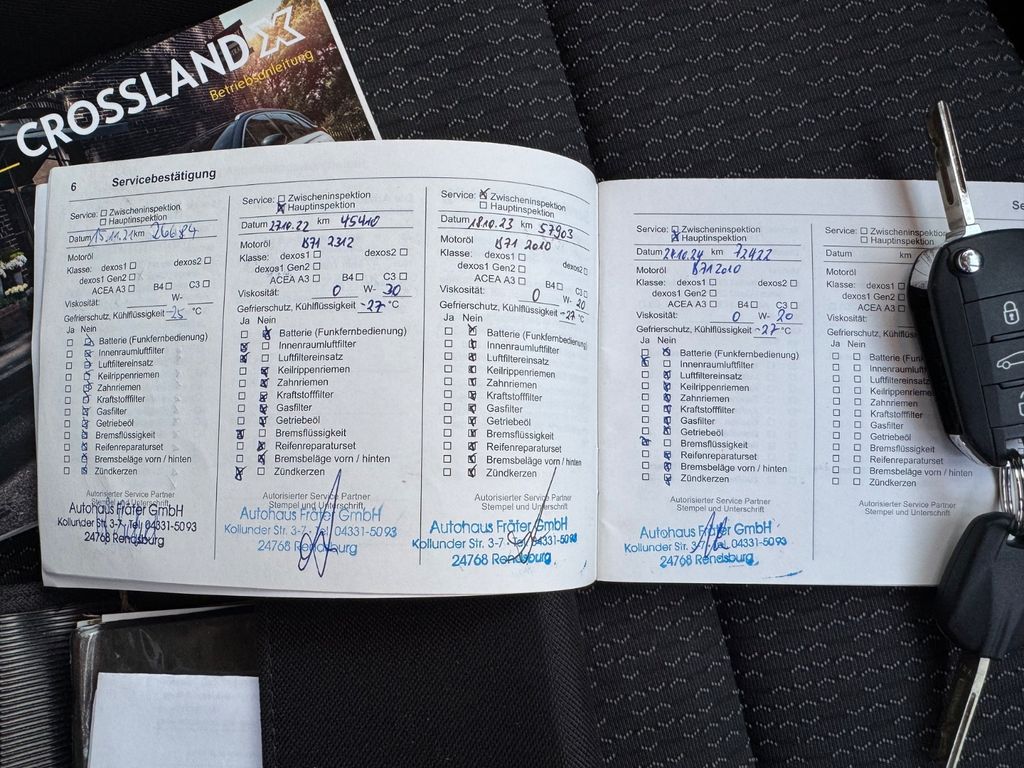 CROSSLAND X
Betriebsanleitung
6 Servicebestätigung
Service: Zwischeninspektion
Hauptinspektion
Datum 15.11.21 km 26684
Motoröl
Klasse: dexos1 dexos2
dexos1 Gen2
ACEA A3 B4 C3
Viskosität: W-
Gefrierschutz, Kühlflüssigkeit -25 °C
Ja Nein
Batterie (Funkfernbedienung)
Innenraumluftfilter
Luftfiltereinsatz
Keilrippenriemen
Zahnriemen
Kraftstofffilter
Gasfilter
Getriebeöl
Bremsflüssigkeit
Reifenreparaturset
Bremsbeläge vorn / hinten
Zündkerzen
Autorisierter Service Partner
Stempel und Unterschrift
Autohaus Fräter GmbH
Kollunder Str. 3-7, Tel. 04331-5093
24768 Rendsburg
Service: Zwischeninspektion
Hauptinspektion
Datum 27.10.22 km 45410
Motoröl B71 2312
Klasse: dexos1 dexos2
dexos1 Gen2
ACEA A3 B4 C3
Viskosität: 0 W- 30
Gefrierschutz, Kühlflüssigkeit -27 °C
Ja Nein
Batterie (Funkfernbedienung)
Innenraumluftfilter
Luftfiltereinsatz
Keilrippenriemen
Zahnriemen
Kraftstofffilter
Gasfilter
Getriebeöl
Bremsflüssigkeit
Reifenreparaturset
Bremsbeläge vorn / hinten
Zündkerzen
Autorisierter Service Partner
Stempel und Unterschrift
Autohaus Fräter GmbH
Kollunder Str. 3-7, Tel. 04331-5093
24768 Rendsburg
Service: Zwischeninspektion
Hauptinspektion
Datum 18.10.23 km 57903
Motoröl B71 2010
Klasse: dexos1 dexos2
dexos1 Gen2
ACEA A3 B4 C3
Viskosität: 0 W- 20
Gefrierschutz, Kühlflüssigkeit -27 °C
Ja Nein
Batterie (Funkfernbedienung)
Innenraumluftfilter
Luftfiltereinsatz
Keilrippenriemen
Zahnriemen
Kraftstofffilter
Gasfilter
Getriebeöl
Bremsflüssigkeit
Reifenreparaturset
Bremsbeläge vorn / hinten
Zündkerzen
Autorisierter Service Partner
Stempel und Unterschrift
Autohaus Fräter GmbH
Kollunder Str. 3-7, Tel. 04331-5093
24768 Rendsburg
Service: Zwischeninspektion
Hauptinspektion
Datum 21.10.24 km 72422
Motoröl B71 2010
Klasse: dexos1 dexos2
dexos1 Gen2
ACEA A3 B4 C3
Viskosität: 0 W- 20
Gefrierschutz, Kühlflüssigkeit -27 °C
Ja Nein
Batterie (Funkfernbedienung)
Innenraumluftfilter
Luftfiltereinsatz
Keilrippenriemen
Zahnriemen
Kraftstofffilter
Gasfilter
Getriebeöl
Bremsflüssigkeit
Reifenreparaturset
Bremsbeläge vorn / hinten
Zündkerzen
Autorisierter Service Partner
Stempel und Unterschrift
Autohaus Fräter GmbH
Kollunder Str. 3-7, Tel. 04331-5093
24768 Rendsburg
Se
Service: Zwischeninspektion
Hauptinspektion
Datum km
Motoröl
Klasse: dexos1
dexos1 Gen2
ACEA A3
Viskosität:
Gefrierschutz, Kühlflüss
Ja Nein
Batterie (Funk
Innenraumluftf
Luftfiltereinsatz
Keilrippenriemen
Zahnriemen
Kraftstofffilter
Gasfilter
Getriebeöl
Bremsflüssigkeit
Reifenreparaturset
Bremsbeläge vorn / hinten
Zündkerzen
Autorisierter Service Partner
Stempel und Unterschrift